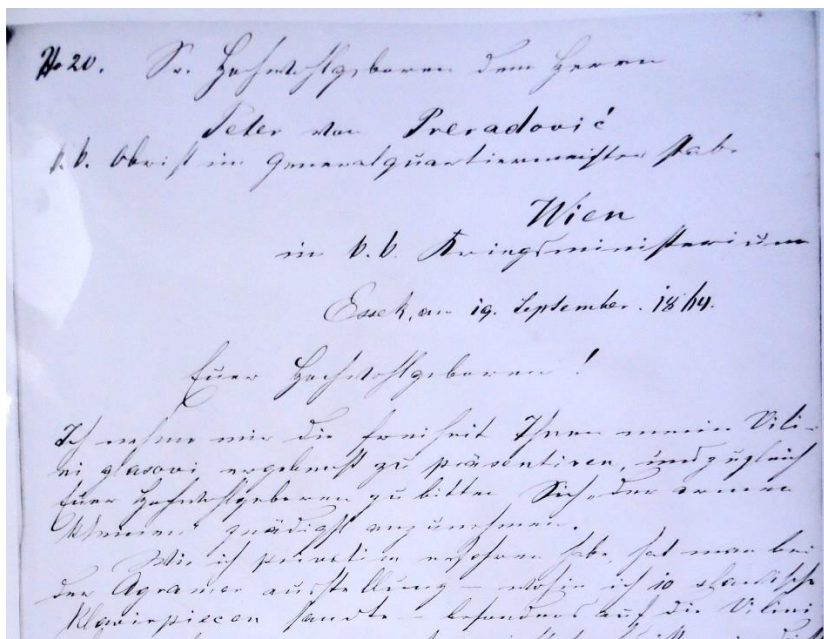 No 20. Sr. Hochwohlgeboren dem Herrn
Peter von Preradović
k. k. Obrist im Generalquartiermeister Stabe
Wien
im k. k. Kriegsministerium
Essek, am 19. September. 1864.
Euer Hochwohlgeboren!
Ich nehme mir die Freiheit Ihnen meine Vili-
ni glasovi ergebenst zu präsentiren, und zugleich
Euer Hochwohlgeboren zu bitten Sich „der armen
Kleinen“ gnädigst anzunehmen.
Wie ich privatim erfahren habe, hat man bei
der Agramer Ausstellung – wohin ich 10
Klavierpiecen sandte – besonders auf die Vilini